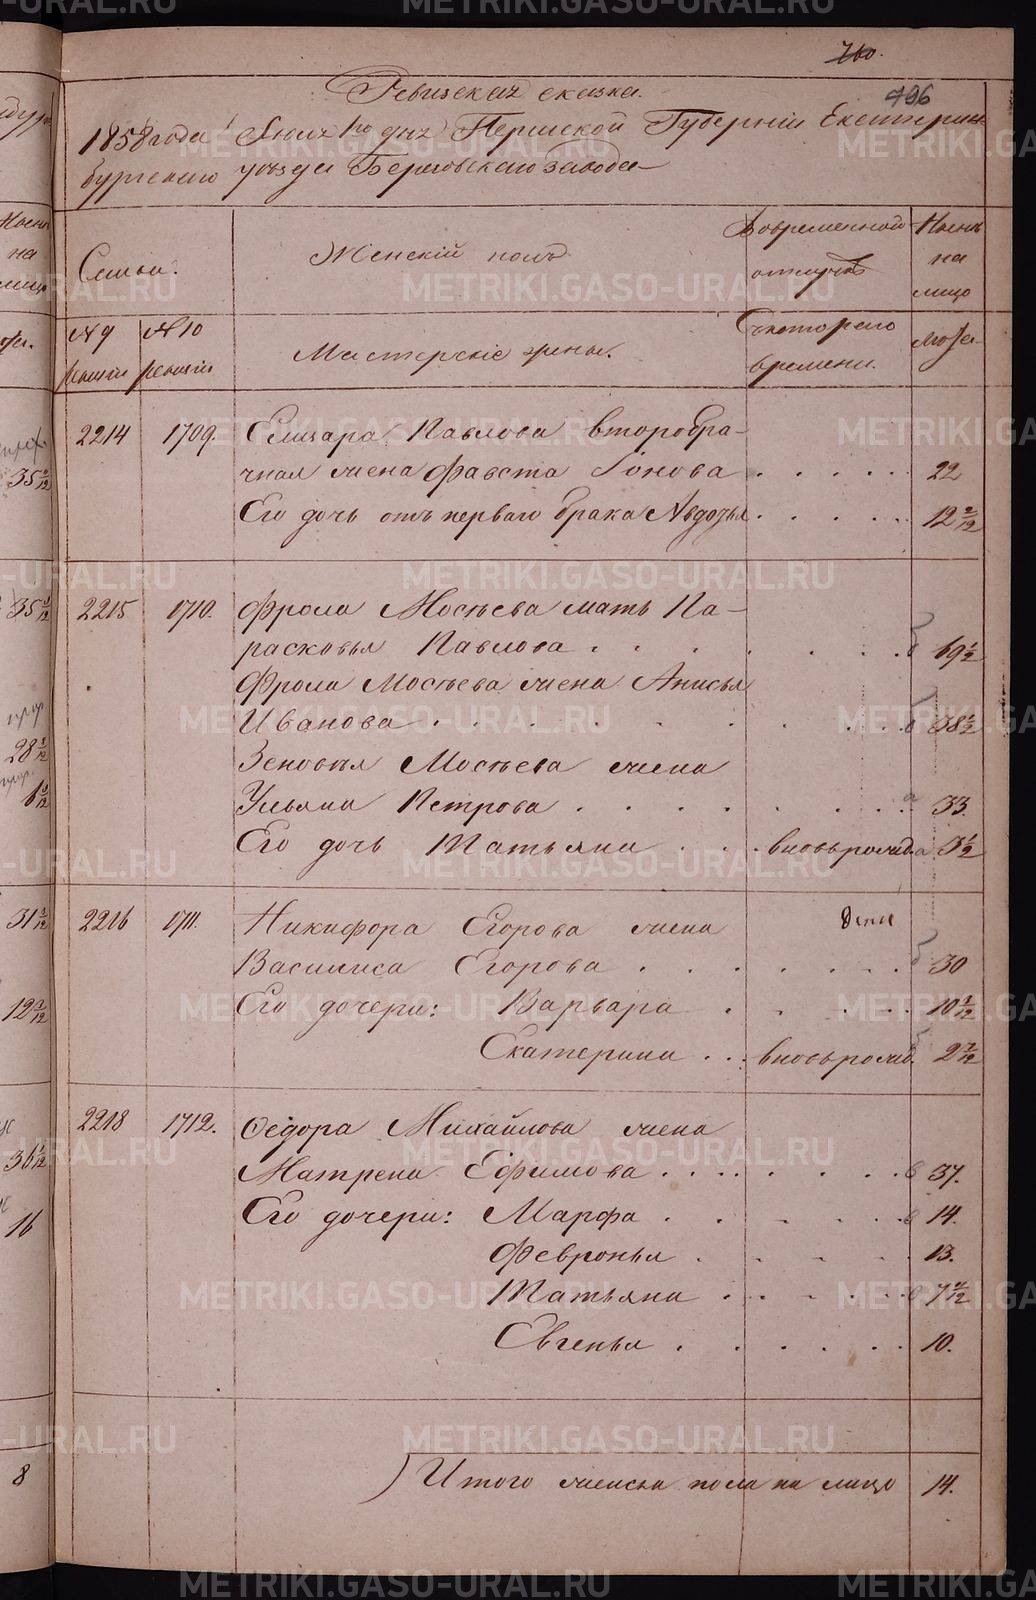 760.
796
Ревизская сказка.
1858 года Июля 1го дня Пермской Губернии Екатерин
бургскаго уезда Березовскаго завода
Семьи.
Женский полъ
Во временной
отлучке
Ныне
на
лицо
№ 9
ревизии
№ 10
ревизии
Мастерские жены.
Съ котораго
времени.
Лета
2214 1709. Павлова второбра-
чная жена Фавста Іонова . . . . . 22
Его дочь отъ перваго брака Авдотья . . . . . 12 2/12
2215 1710. Фрола Мосеева мать Па-
расковья Павлова . . . . . . . 69 1/2
Фрола Мосеева жена Анисья
Иванова . . . . . . . 38 1/2
Зеновея Мосеева жена
Ульяна Петрова . . . . . . . 33.
Его дочь Татьяна . . . . вновь рожд. 3 1/2
2216 1711. Никифора Егорова жена
Василиса Егорова . . . . . . . 30
Его дочери: Варвара . . . . . 10 1/2
Екатерина . . . вновь рожд. 2 7/12
2218 1712. Федора Михайлова жена
Матрена Ефимова . . . . . . . . 37.
Его дочери: Марфа . . . . . 14.
Февронья . . . . . 13.
Татьяна . . . . . 7
Евгенья . . . . . 10.
Итого женска пола на лицо 14.
METRIKI.GASO-URAL.RU